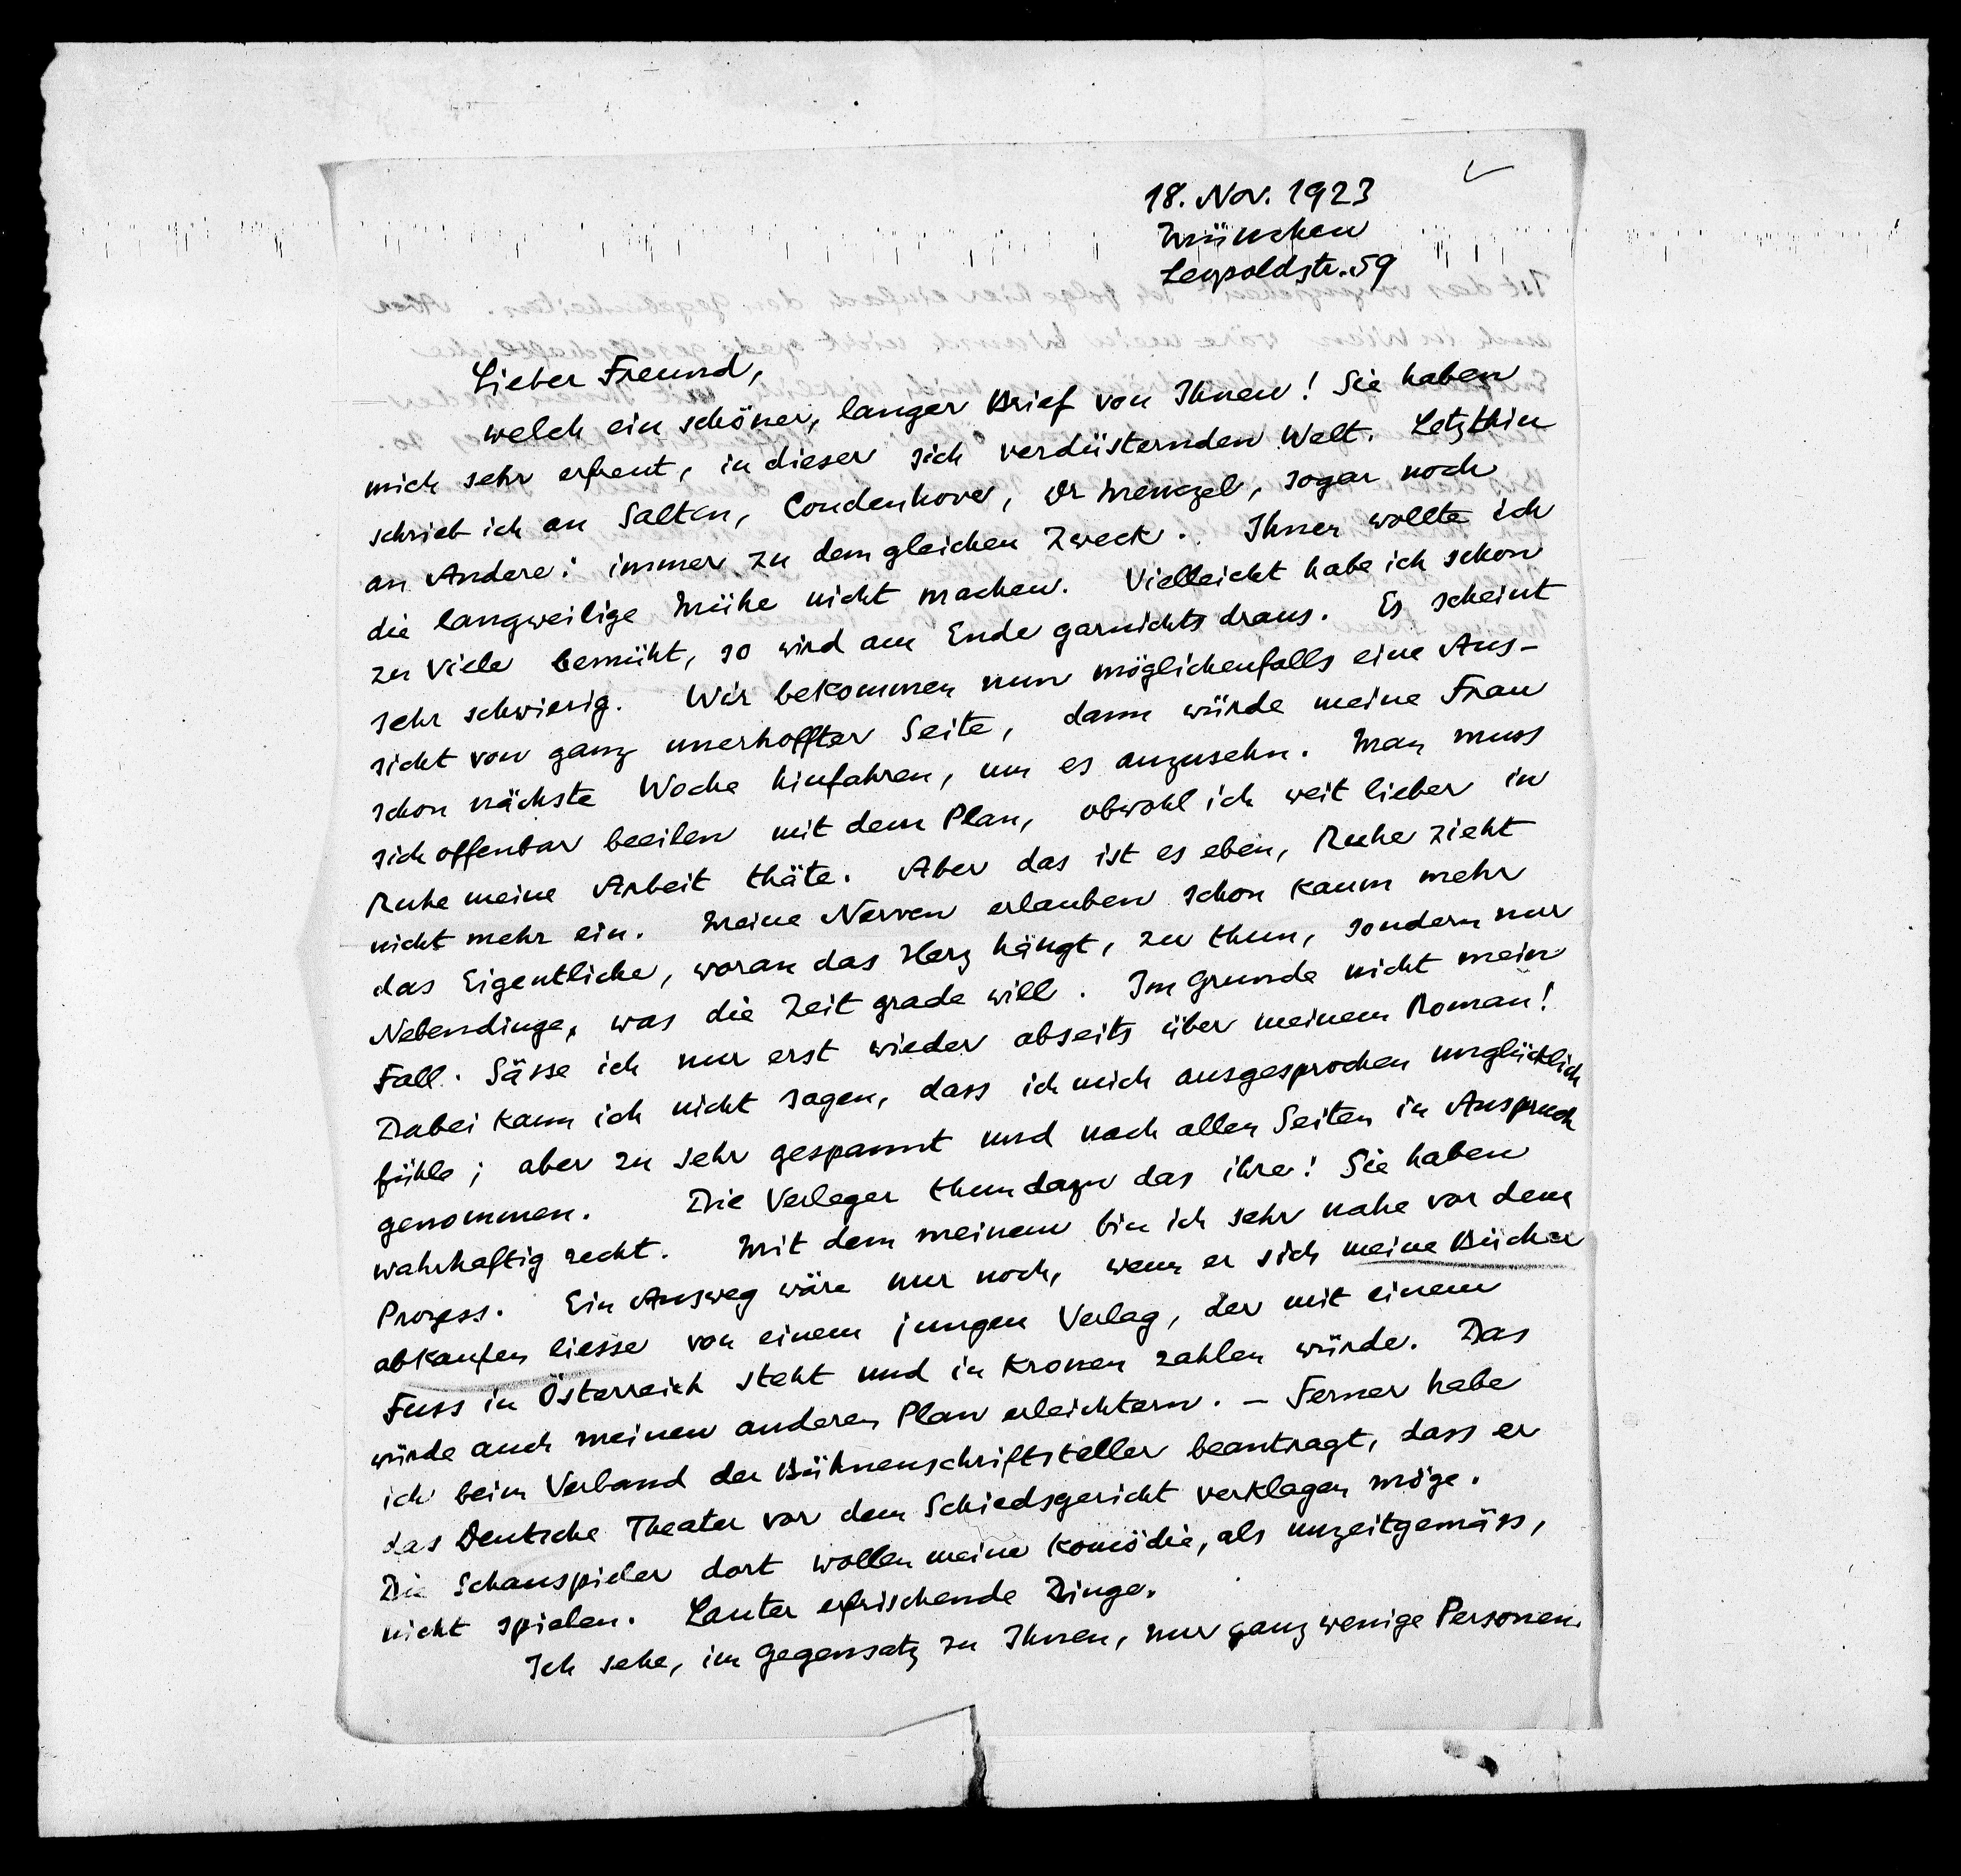 18. Nov. 1923
München
Leopoldstr. 59
Lieber Freund,
welch ein schöner, langer Brief von Ihnen! Sie haben
mich sehr erfreut, in dieser sich verdüsternden Welt. Letzthin
schrieb ich an Salten, Coudenhove, Dr Menczel, sogar noch
an Andere: immer zu dem gleichen Zweck. Ihnen wollte ich
die langweilige Mühe nicht machen. Vielleicht habe ich schon
zu Viele bemüht, so wird am Ende garnichts draus. Es scheint
sehr schwierig. Wir bekommen nun möglichenfalls eine Aus-
sicht von ganz unerhoffter Seite, dann würde meine Frau
schon nächste Woche hinfahren, um es anzusehn. Man muss
sich offenbar beeilen mit dem Plan, obwohl ich weit lieber in
Ruhe meine Arbeit thäte. Aber das ist es eben, Ruhe zieht
nicht mehr ein. Meine Nerven erlauben schon kaum mehr
das Eigentliche, woran das Herz hängt, zu thun, sondern nur
Nebendinge, was die Zeit grade will. Im Grunde nicht mein
Fall. Sässe ich nur erst wieder abseits über meinem Roman!
Dabei kann ich nicht sagen, dass ich mich ausgesprochen unglücklich
fühle; aber zu sehr gespannt und nach allen Seiten in Anspruch
genommen. Die Verleger thun dazu das ihre! Sie haben
wahrhaftig recht. Mit dem meinem bin ich sehr nahe vor dem
Prozess. Ein Ausweg wäre nur noch, wenn er sich meine Bücher
abkaufen liesse von einem jungen Verlag, der mit einem
Fuss in Österreich steht und in Kronen zahlen würde. Das
würde auch meinen anderen Plan erleichtern. – Ferner habe
ich beim Verband der Bühnenschriftsteller beantragt, dass er
das Deutsche Theater vor dem Schiedsgericht verklagen möge.
Die Schauspieler dort wollen meine Komödie, als unzeitgemäss,
nicht spielen. Lauter erfrischende Dinge.
Ich sehe, im Gegensatz zu Ihnen, nur ganz wenige Personen.